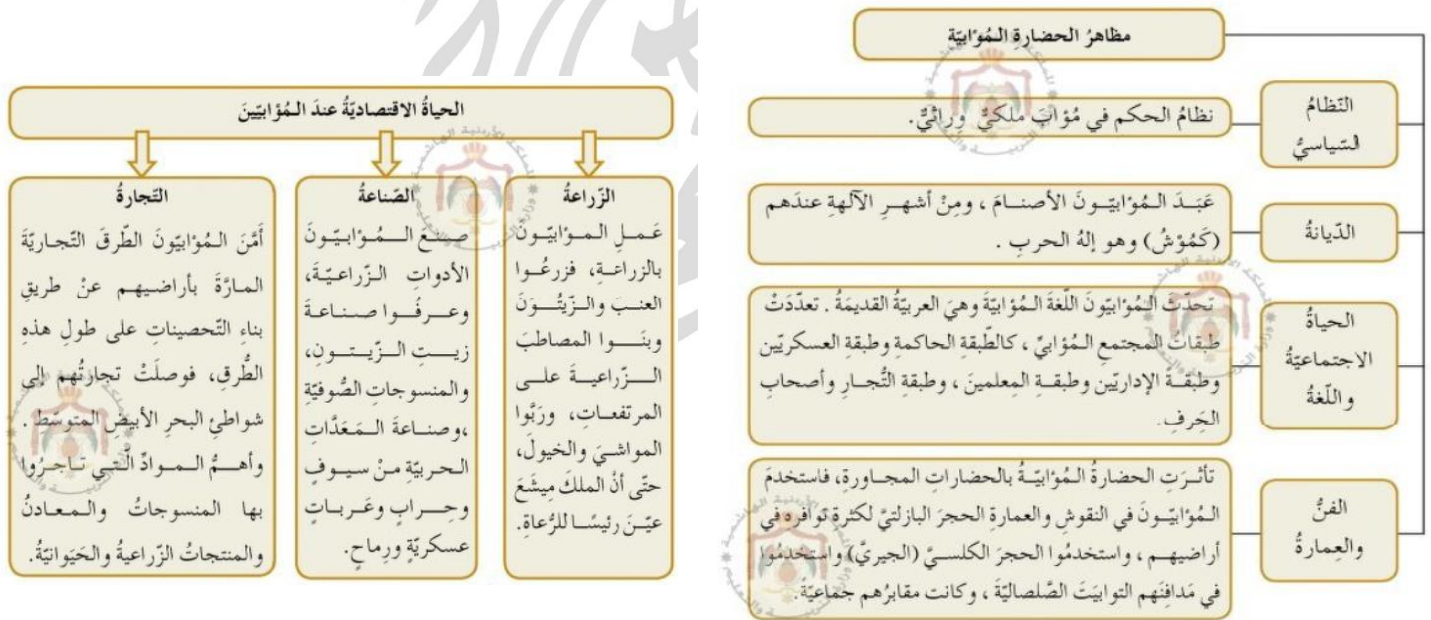 مظاهرُ الحضارةِ المُؤابيّة
النّظامُ
السّياسيُّ
نظامُ الحكم في مُؤابَ ملكيٌّ وراثيٌّ.
الدّيانةُ
عَبَدَ المُؤابيّونَ الأصنامَ ، ومِنْ أشهرِ الآلهةِ عندَهم
(كَمُوْشُ) وهو إلهُ الحربِ .
الحياةُ
الاجتماعيّةُ
واللّغةُ
تحدّثَ المُؤابيّونَ اللّغةَ المُؤابيّةَ وهيَ العربيّةُ القديمَةُ . تعدّدَتْ
طبقاتُ المجتمعِ المُؤابيِّ ، كالطّبقةِ الحاكمةِ وطبقةِ العسكريّين
وطبقةِ الإداريّين وطبقةِ المعلمينَ ، وطبقةِ التُّجارِ وأصحابِ
الحِرفِ.
الفنُّ
والعِمارةُ
تأثرَتِ الحضارةُ المُؤابيّةُ بالحضاراتِ المجاورةِ، فاستخدمَ
المُؤابيّونَ في النقوشِ والعمارةِ الحجرَ البازلتيَّ لكثرةِ توافرِه في
أراضيهم ، واستخدمُوا الحجرَ الكلسيَّ (الجيريَّ) واستخدمُوا
في مَدافنَهم التوابيَتَ الصَّلصاليّةَ ، وكانت مقابرُهم جماعيّةً.
الحياةُ الاقتصاديّةُ عندَ المُؤابيّينَ
الزّراعةُ
عَملِ المؤابيّونَ
بالزراعةِ، فزرعُوا
العنبَ والزّيتُونَ
وبنَوا المصاطبَ
الزّراعيةَ على
المرتفعاتِ، ورَبَّوا
المواشيَ والخيولَ،
حتّى أنْ الملكَ مِيشَعَ
عيّنَ رئيسًا للرُّعاةِ.
الصّناعةُ
صنعَ المُؤابيّونَ
الأدواتِ الزّراعيّةَ،
وعرفُوا صناعةَ
زيتِ الزّيتونِ،
والمنسوجاتِ الصُّوفيّةِ
،وصناعةَ المَعَدَّاتِ
الحربيّةِ منْ سيوفٍ
وحرابٍ وعَرباتٍ
عسكريّةٍ ورِماحٍ.
التّجارةُ
أَمَّنَ المُؤابيّونَ الطّرقَ التّجاريّةَ
المارَّةَ بأراضيهم عنْ طريقِ
بناءِ التّحصيناتِ على طولِ هذهِ
الطُّرقِ، فوصلَتْ تجارتُهم إلى
شواطئِ البحرِ الأبيضِ المتوسّطِ .
وأهمُّ الموادِّ الّتي تاجرُوا
بها المنسوجاتُ والمعادنُ
والمنتجاتُ الزّراعيةُ والحَيَوانيّةُ.